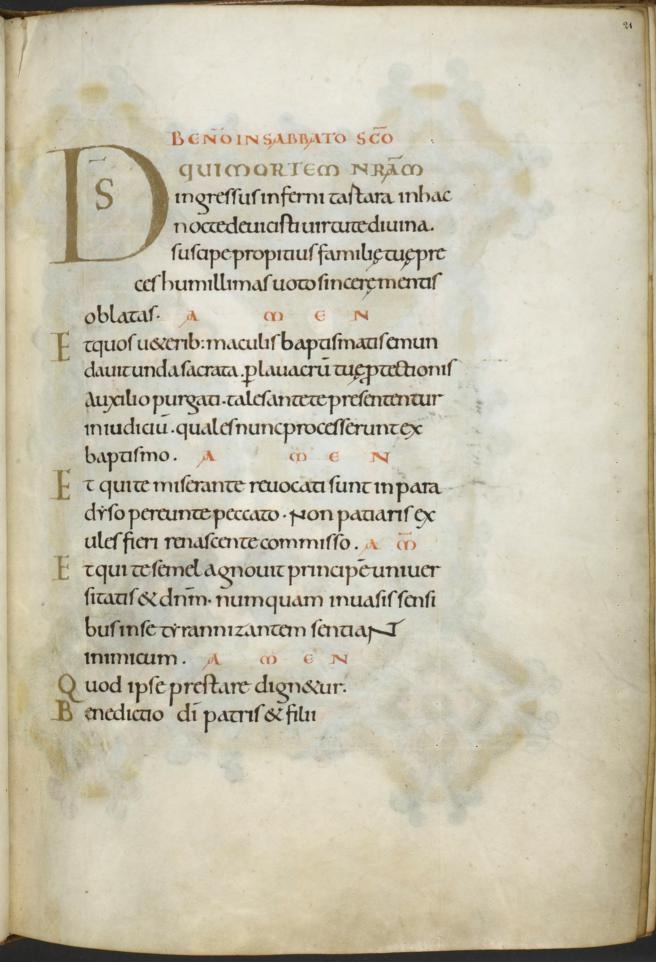 21
BEN̄O IN SABBATO SC̄O
D̄S QUI MORTEM NR̄AM
ingressus inferni tastara in hac
nocte devicisti virtute divina.
suscipe propitius familię tuę pre
ces humillimas voto sincerę mentis
oblatas. A M E N
Et quos u&erib: maculis baptismatis emun
davit unda sacrata. ꝑ lavacrū tuę ꝓtectionis
auxilio purgati. tales ante te presententur
in iudiciū. quales nunc processerunt ex
baptismo. A M E N
Et qui te miserante revocati sunt in para
dẏso pereunte peccato. Non patiaris ex
ules fieri renascente commisso. A M̄
Et qui te semel agnovit principē univer
sitatis & dnm̄. nūmquam invasis sensi
bus in se tẏrannizantem sentiaN
inimicum. A M E N
Quod ipse prestare dign&ur.
Benedictio dī patris & filii